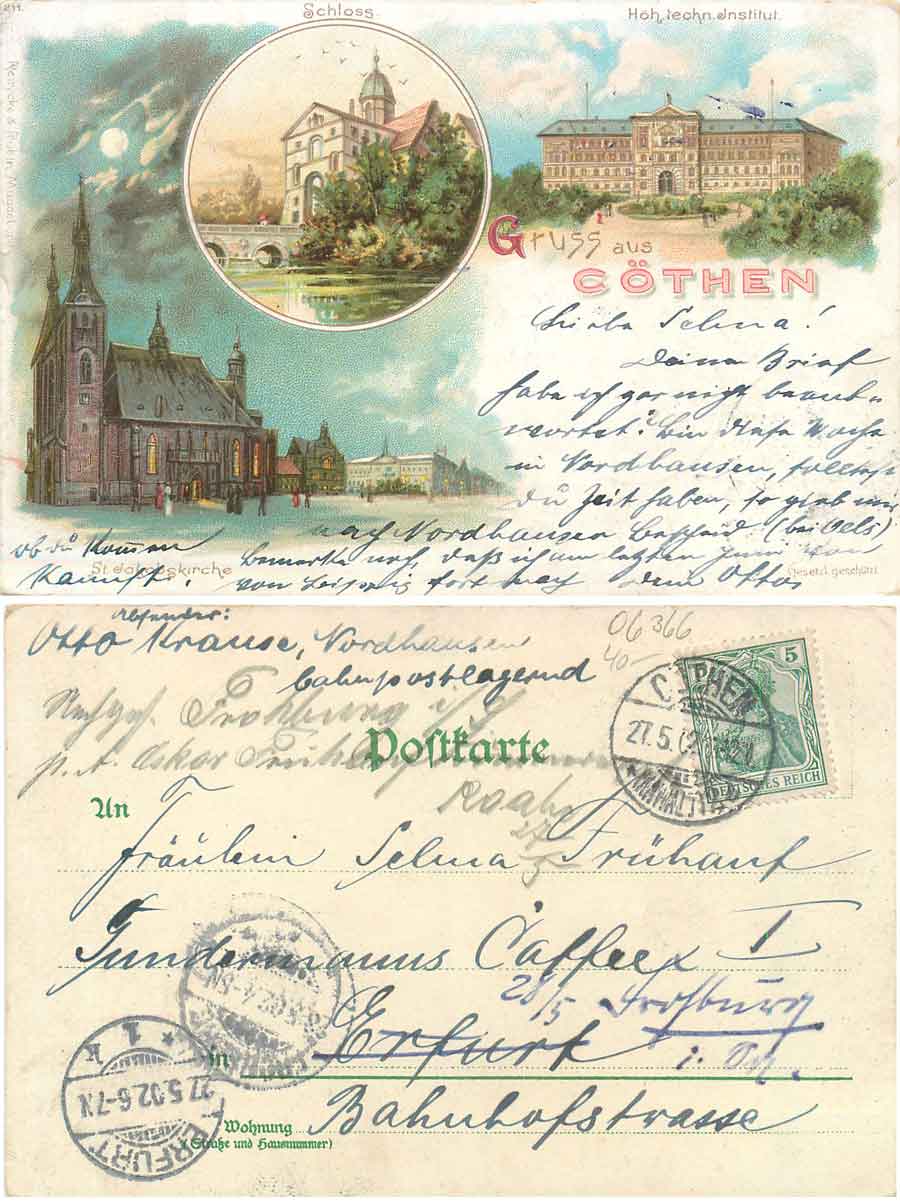 211.
Schloss
Höh. techn. Institut.
Gruss aus
CÖTHEN
Liebe Selma!
Deinen Brief
habe ich gar nicht beant-
wortet. Bin diese Woche
in Nordhausen, solltest
du Zeit haben, so gieb mir
nach Nordhausen Bescheid
ob du kommen
kannst.
Bemerke noch, daß ich am letzten Juni von
von Leipzig fort Otto
St. Jakobskirche
Gesetzl. geschützt.
Absender:
Otto Krause, Nordhausen
bahnpostlagernd
06366
40-
Frohburg i/S
p. A. Oskar Frühauf
Postkarte
5
DEUTSCHES REICH
CÖTHEN
27.5.02
(ANHALT)
An
Fräulein Selma Frühauf
Gundermanns Caffee I
28/5 Frohburg
in Erfurt
Bahnhofstrasse
Wohnung
(Straße und Hausnummer)
* 1 k
27.5.02.6-7N
ERFURT